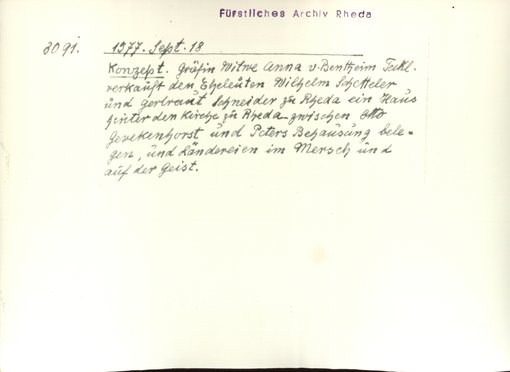 Fürstliches Archiv Rheda
3091. 1577. Sept. 18
Konzept. Gräfin Witwe Anna v. Bentheim Teckl.
verkauft den Eheleuten Wilhelm Schotteler
und Gertraut Schneider zu Rheda ein Haus
hinter der Kirche zu Rheda zwischen Otto
Gerekenhorst und Peters Behausung bele-
gen, und Ländereien im Mersch und
auf der Geist.